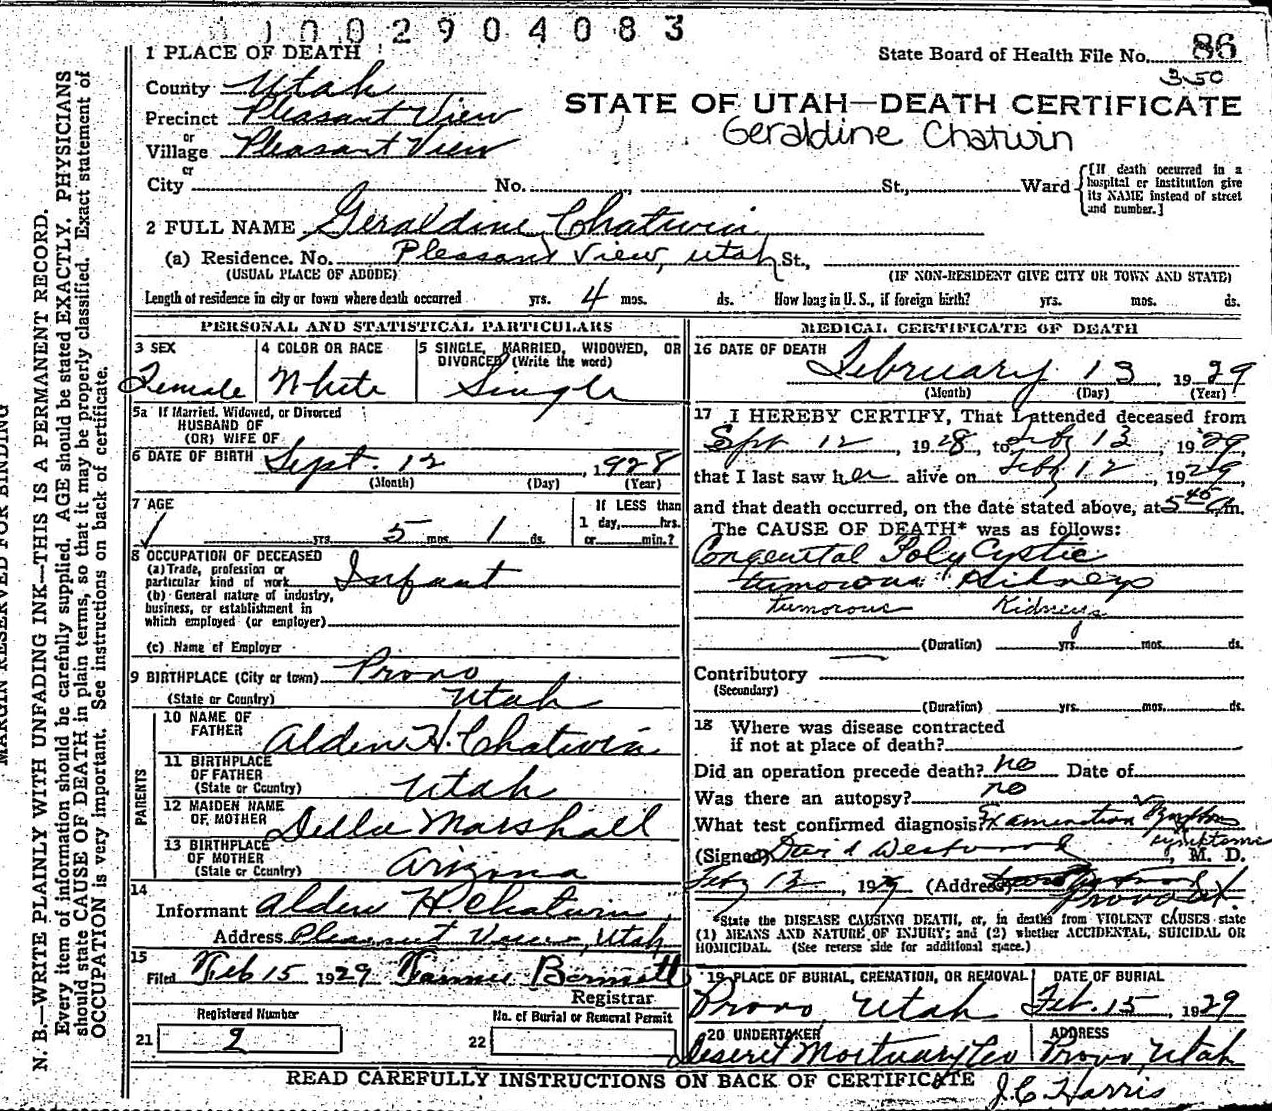 1002904083
1 PLACE OF DEATH
State Board of Health File No. 86
350
County Utah
STATE OF UTAH—DEATH CERTIFICATE
Precinct Pleasant View
Geraldine Chatwin
or
Village Pleasant View
or
City No. , St., Ward
[If death occurred in a hospital or institution give its NAME instead of street and number.]
2 FULL NAME Geraldine Chatwin
(a) Residence. No. Pleasant View, Utah St.,
(USUAL PLACE OF ABODE) (IF NON-RESIDENT GIVE CITY OR TOWN AND STATE)
Length of residence in city or town where death occurred yrs. 4 mos. ds. How long in U. S., if foreign birth? yrs. mos. ds.
PERSONAL AND STATISTICAL PARTICULARS
3 SEX
Female
4 COLOR OR RACE
White
5 SINGLE, MARRIED, WIDOWED, OR
DIVORCED (Write the word)
Single
5a If Married, Widowed, or Divorced
HUSBAND OF
(OR) WIFE OF
6 DATE OF BIRTH Sept. 12, 1928
(Month) (Day) (Year)
7 AGE
yrs. 5 mos. 1 ds.
If LESS than
1 day, hrs.
or min.?
8 OCCUPATION OF DECEASED
(a) Trade, profession or
particular kind of work Infant
(b) General nature of industry,
business, or establishment in
which employed (or employer)
(c) Name of Employer
9 BIRTHPLACE (City or town) Provo
(State or Country) Utah
PARENTS
10 NAME OF
FATHER Alden H. Chatwin
11 BIRTHPLACE
OF FATHER
(State or Country) Utah
12 MAIDEN NAME
OF MOTHER Della Marshall
13 BIRTHPLACE
OF MOTHER
(State or Country) Arizona
14
Informant Alden H. Chatwin
Address Pleasant View, Utah
15
Filed Feb 15 1929
Registrar
Registered Number
21 2
No. of Burial or Removal Permit
22
MEDICAL CERTIFICATE OF DEATH
16 DATE OF DEATH
February 13, 1929
(Month) (Day) (Year)
17 I HEREBY CERTIFY, That I attended deceased from
Sept 12, 1928, to Feb 13, 1929,
that I last saw her alive on Feb 12, 1929
and that death occurred, on the date stated above, at 5 45 m.
The CAUSE OF DEATH* was as follows:
Congenital Poly Cystic
tumorous Kidneys
tumorous Kidneys
(Duration) yrs. mos. ds.
Contributory
(Secondary)
(Duration) yrs. mos. ds.
18 Where was disease contracted
if not at place of death?
Did an operation precede death? no Date of
Was there an autopsy? no
What test confirmed diagnosis? Examination
symptoms
(Signed) David Westwood, M. D.
Feb 13, 1929 (Address)
Provo Ut.
*State the DISEASE CAUSING DEATH, or, in deaths from VIOLENT CAUSES state
(1) MEANS AND NATURE OF INJURY; and (2) whether ACCIDENTAL, SUICIDAL OR
HOMICIDAL. (See reverse side for additional space.)
19 PLACE OF BURIAL, CREMATION, OR REMOVAL
Provo, Utah
DATE OF BURIAL
Feb. 15, 1929
20 UNDERTAKER
Deseret Mortuary Co
ADDRESS
Provo, Utah
READ CAREFULLY INSTRUCTIONS ON BACK OF CERTIFICATE
J. C Harris
MARGIN RESERVED FOR BINDING
N. B.—WRITE PLAINLY WITH UNFADING INK—THIS IS A PERMANENT RECORD.
Every item of information should be carefully supplied. AGE should be stated EXACTLY. PHYSICIANS
should state CAUSE OF DEATH in plain terms, so that it may be properly classified. Exact statement of
OCCUPATION is very important. See instructions on back of certificate.